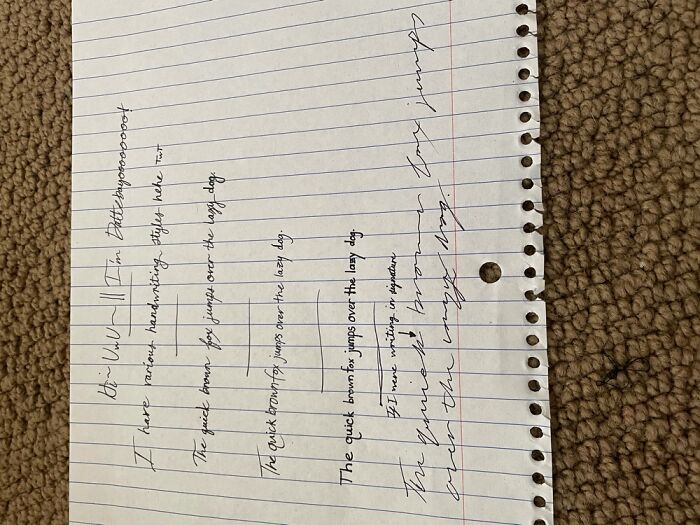 Hi~ UwU~ ||| I'm Dattebayooooooooo!
I have various handwriting styles hehe TwT
The quick brown fox jumps over the lazy dog.
The quick brown fox jumps over the lazy dog.
The quick brown fox jumps over the lazy dog.
If I were writing or signature
The quick brown fox jumps
over the lazy dog.